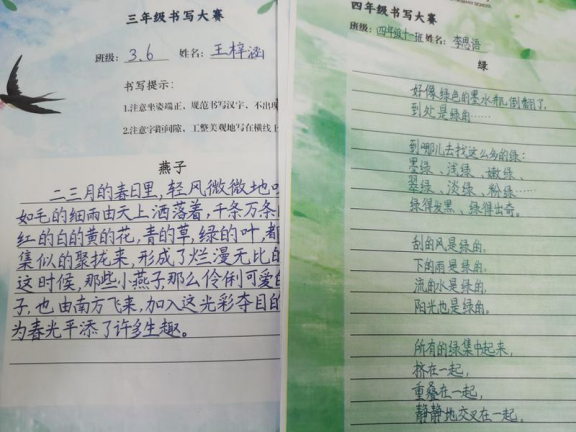 三年级书写大赛
班级：3.6 姓名：王梓涵
书写提示：
1.注意坐姿端正，规范书写汉字，不出现
2.注意字距间隙，工整美观地写在横线上
燕子
二三月的春日里，轻风微微地吹
如毛的细雨由天上洒落着，千条万条
红的白的黄的花，青的草，绿的叶，都
集似的聚拢来，形成了烂漫无比的
这时候，那些小燕子，那么伶俐可爱的
子，也由南方飞来，加入这光彩夺目的
为春光平添了许多生趣。
四年级书写大赛
班级：四年级十一班 姓名：李思语
绿
好像绿色的墨水瓶倒翻了，
到处是绿的……
到哪儿去找这么多的绿：
墨绿、浅绿、嫩绿、
翠绿、淡绿、粉绿……
绿得发黑、绿得出奇。
刮的风是绿的，
下的雨是绿的，
流的水是绿的，
阳光也是绿的。
所有的绿集中起来，
挤在一起，
重叠在一起，
静静地交叉在一起。